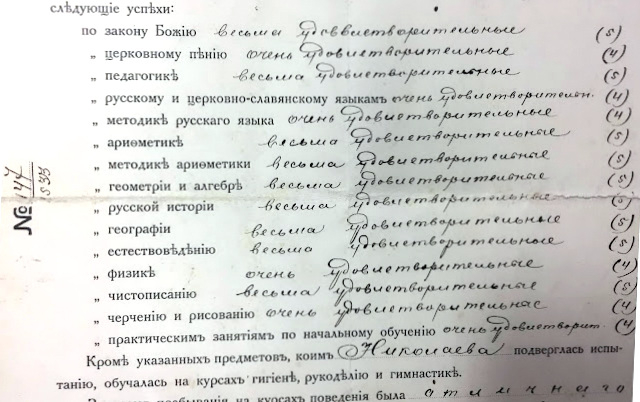 слѣдующіе успѣхи:
по закону Божію весьма удовлетворительные (5)
„ церковному пѣнію очень удовлетворительные (4)
„ педагогикѣ весьма удовлетворительные (5)
„ русскому и церковно-славянскому языкамъ очень удовлетворителн. (4)
„ методикѣ русскаго языка очень удовлетворительные (4)
„ ариѳметикѣ весьма удовлетворительные (5)
„ методикѣ ариѳметики весьма удовлетворительные (5)
„ геометріи и алгебрѣ весьма удовлетворительные (5)
„ русской исторіи весьма удовлетворительные (5)
„ географіи весьма удовлетворительные (5)
„ естествовѣдѣнію весьма удовлетворительные (5)
„ физикѣ очень удовлетворительные (4)
„ чистописанію весьма удовлетворительные (5)
„ черченію и рисованію очень удовлетворительные (4)
„ практическимъ занятіямъ по начальному обученію очень удовлетворит. (4)
Кромѣ указанныхъ предметовъ, коимъ Николаева подверглась испы-
танію, обучалась на курсахъ гигіенѣ, рукодѣлію и гимнастикѣ.
пребыванія на курсахъ поведенія была отличнаго
№ 147